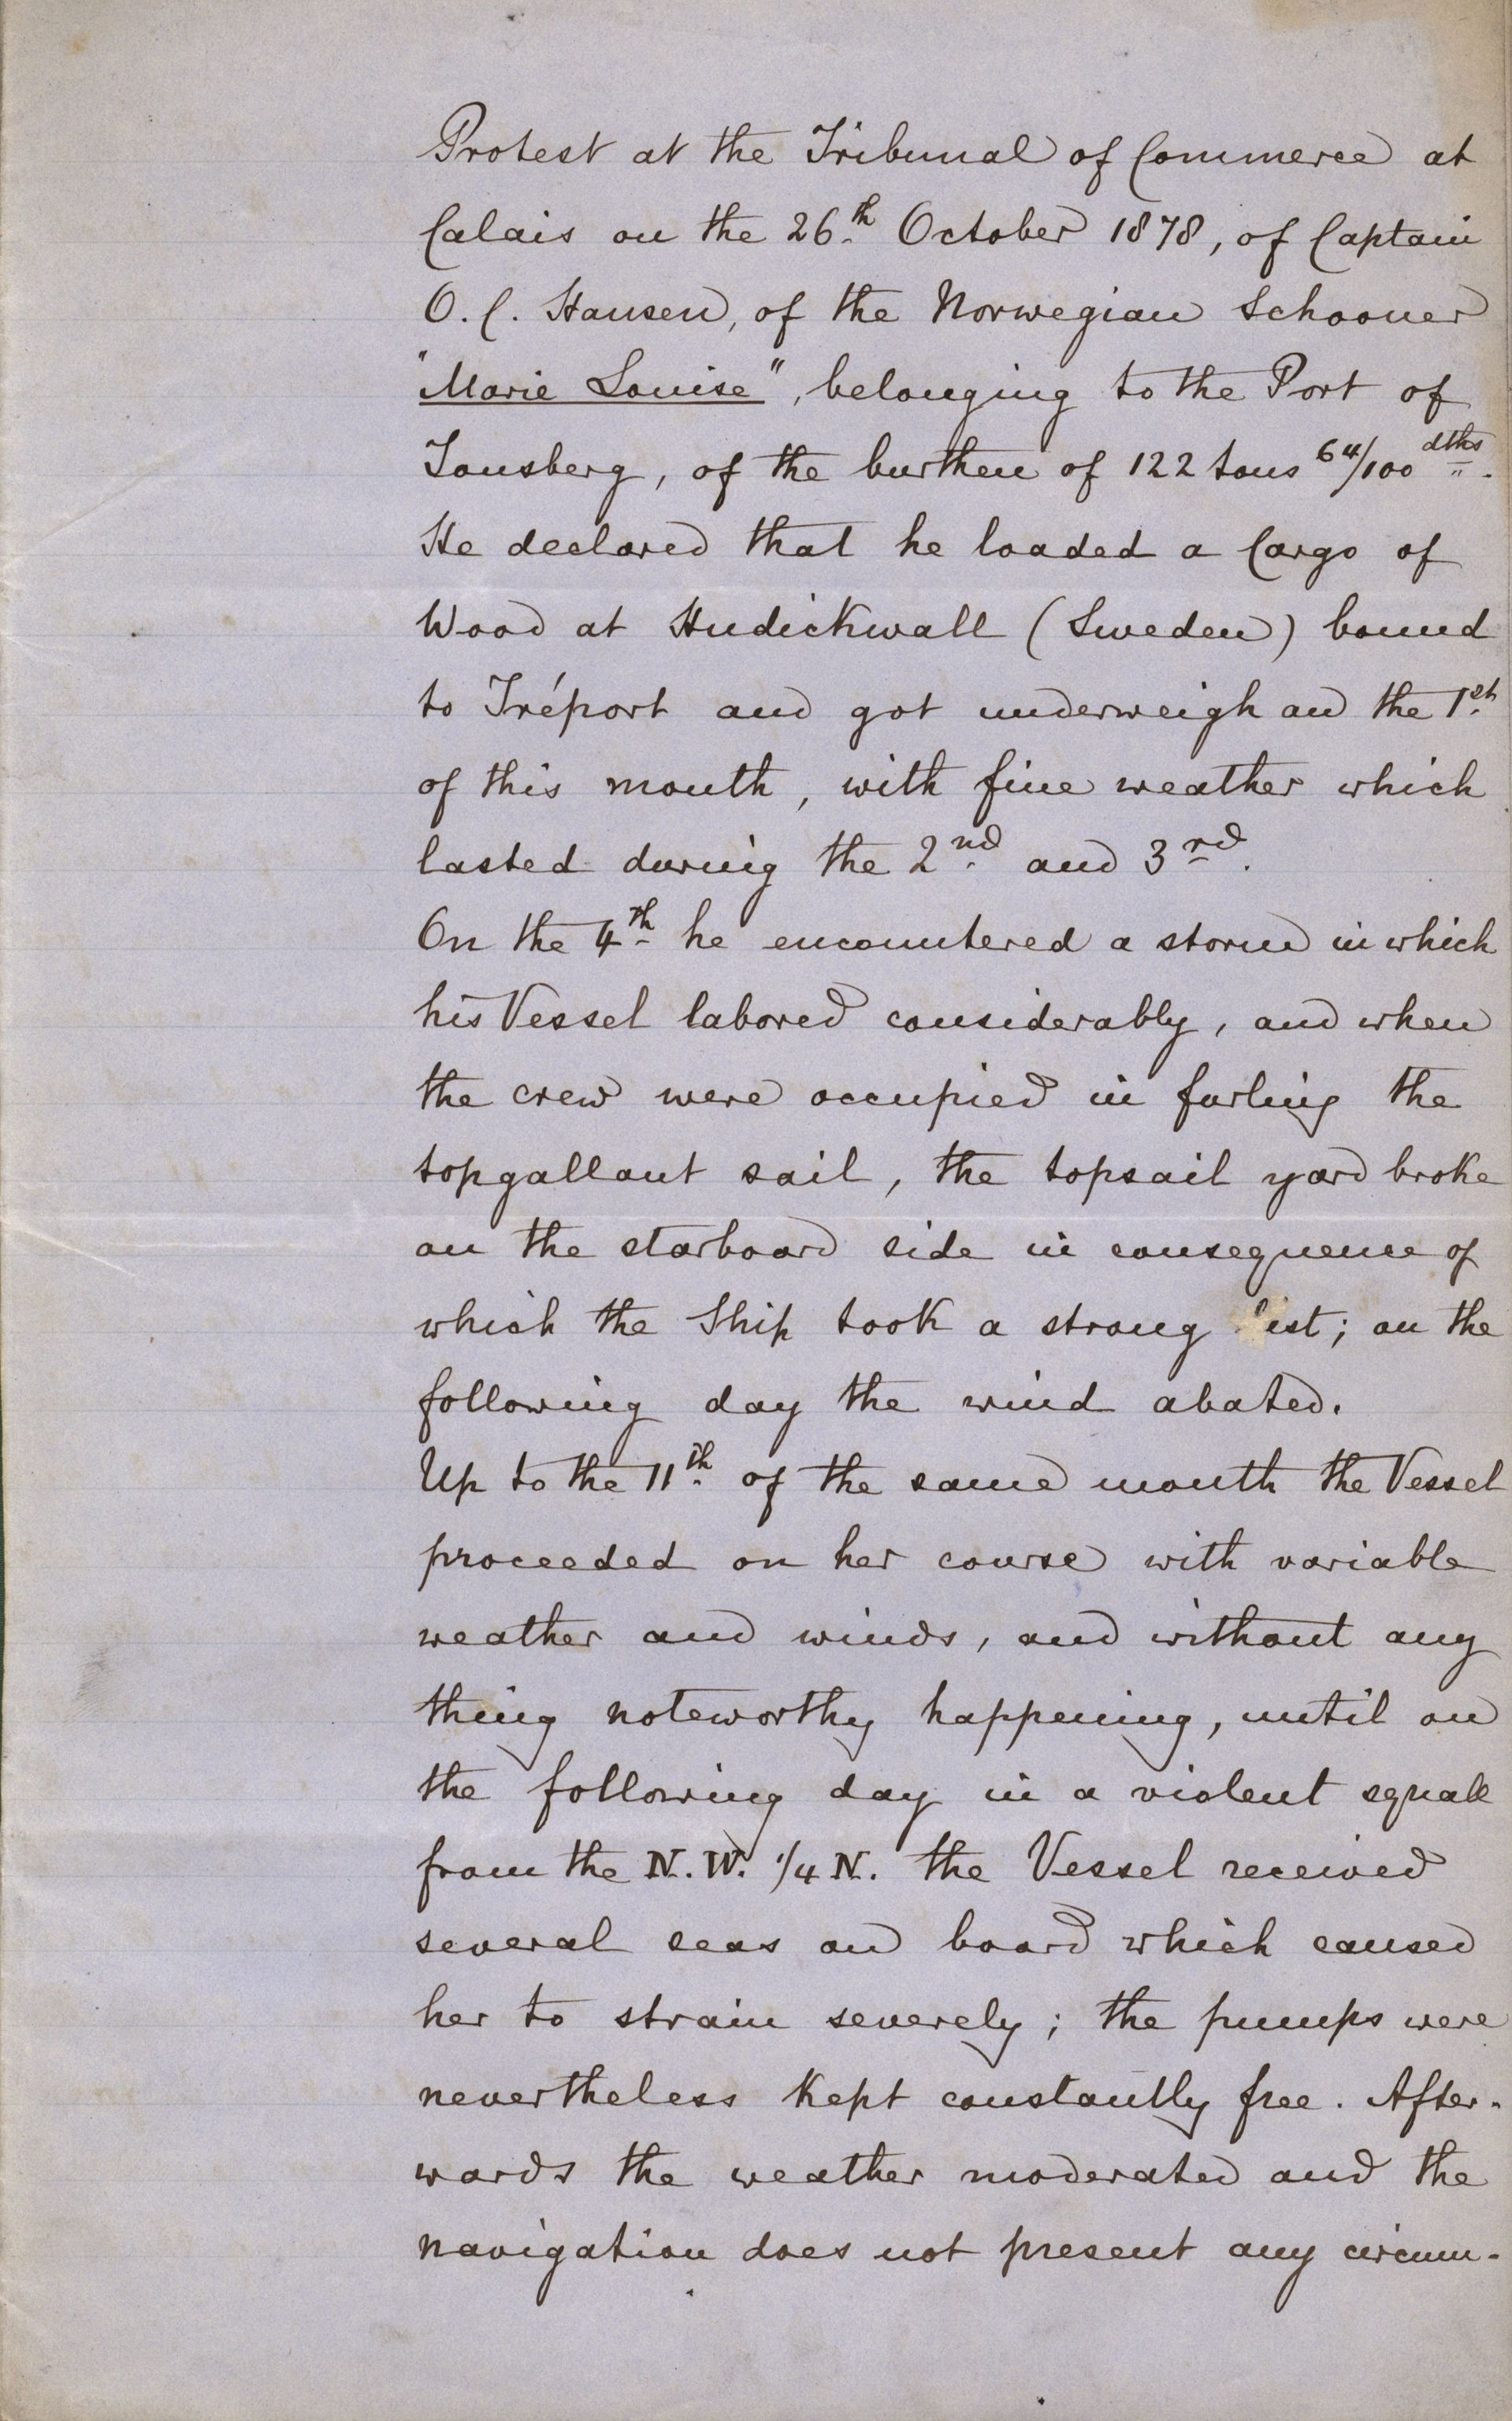 Protest at the Tribunal of Commerce at
Calais on the 26th October 1878, of Captain
O. C. Hansen, of the Norwegian Schooner
"Marie Louise", belonging to the Port of
Tonsberg, of the burthen of 122 tons 64/100 dths.
He declared that he loaded a Cargo of
Wood at Hudickwall (Sweden) bound
to Tréport and got underweigh on the 1st
of this month, with fine weather which
lasted during the 2nd and 3rd.
On the 4th he encountered a storm in which
his Vessel labored considerably, and when
the crew were occupied in furling the
topgallant sail, the topsail yard broke
on the starboard side in consequence of
which the Ship took a strong list; on the
following day the wind abated.
Up to the 11th of the same month the Vessel
proceeded on her course with variable
weather and winds, and without any
thing noteworthy happening, until on
the following day in a violent squall
from the N.W. 1/4 N. the Vessel received
several seas on board which caused
her to strain severely; the pumps were
nevertheless kept constantly free. After-
wards the weather moderated and the
navigation does not present any circum-